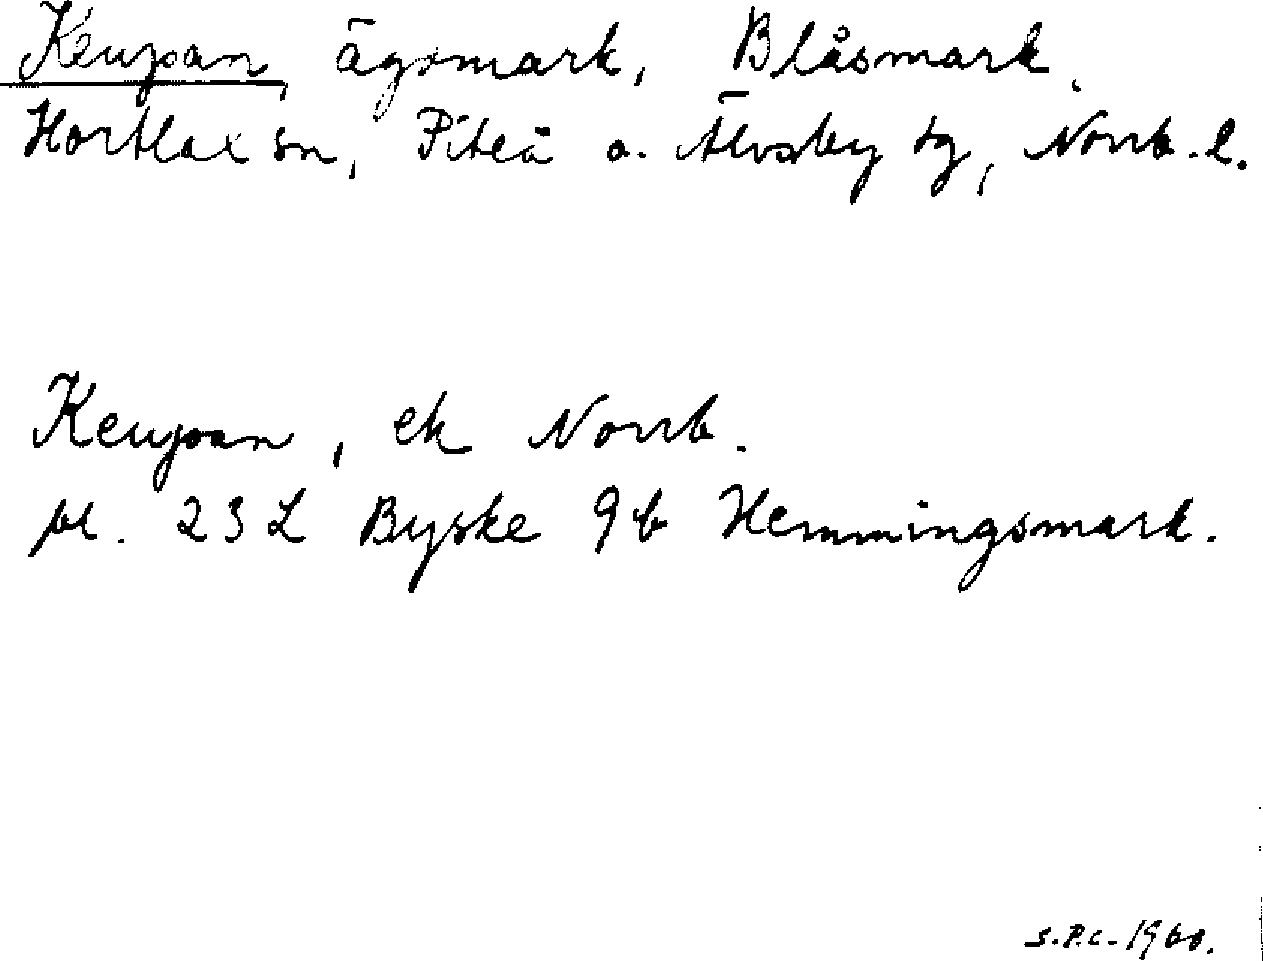 Keupan, ägomark, Blåsmark,
Hortlax sn, Piteå o. Älvsby tg, Norrb. l.
Keupan, ek Norrb.
bl. 23 L Byske 9 b Hemmingsmark.
S.P.C. 1960.